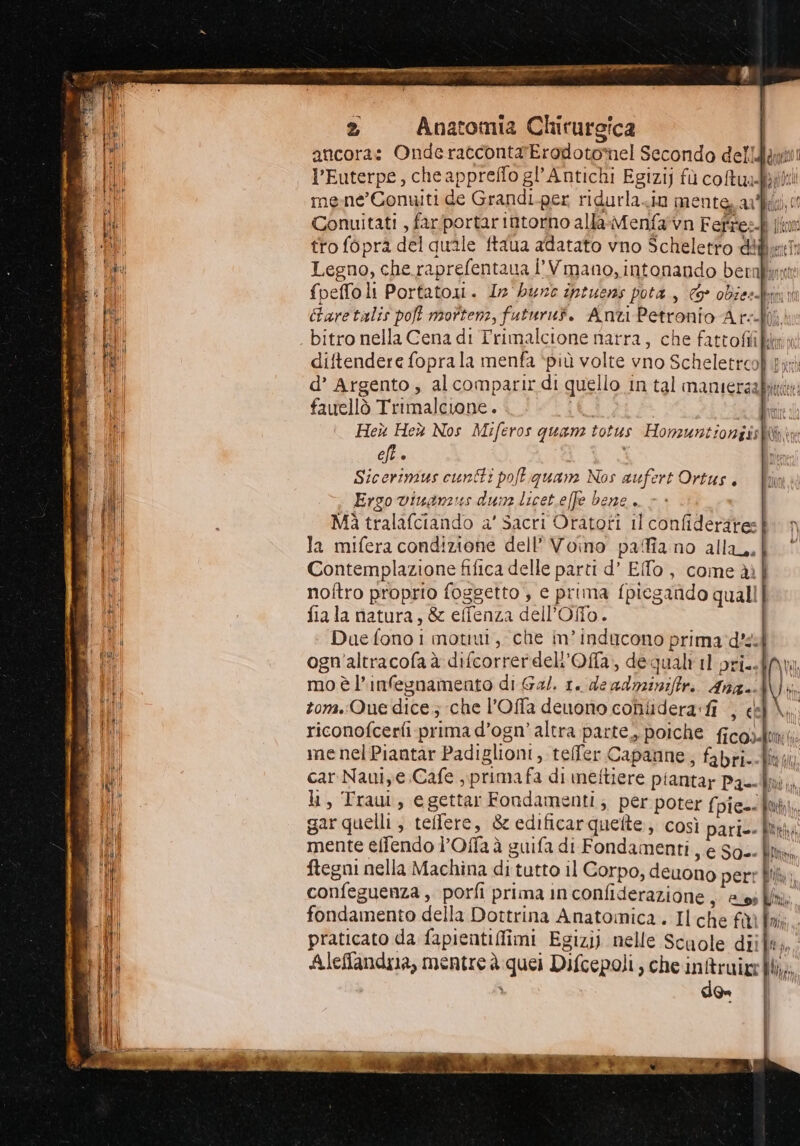 2 Anatomia Chirurgica
ancora: Onde racconta Erodoto nel Secondo dell
l'Euterpe, che appreſſo gl'Antichi Egizij fù coſtu
me ne' Conuiti de Grandi per ridurla in mente, a
Conuitati, far portar intorno alla Menſa vn Fere
tro ſopra del quale ſtaua adatato vno Scheletro di
Legno, che rapreſentaua l'Vmano, intonando ben
ſpeſſo li Portatori. In hunc intuens pota, & oble
ctare talis poſt mortem, futurus. Anzi Petronio Ar
bitro nella Cena di Trimalcione narra, che fattoſi
diſtendere ſopra la menſa più volte vno Scheletro
d' Argento, al comparir di quello in tal maniera
fauellò Trimalcione.
Heù Heù Nos Miſeros quam totus Homuntio
eſt.
Sic erimus cuncti poſt quam Nos aufert Ortus.
Ergo viuamus dum licet eſſe bene.
Mà tralaſciando a' Sacri Oratori il conſiderare
la miſera condizione dell' Vomo paſſiano alla
Contemplazione fiſica delle parti d' Eſſo, come à
noſtro proprio ſoggetto, e prima ſpiegando qual
ſia la natura, & eſſenza dell'Oſſo.
Due ſono i motiui, che m' inducono prima d'
ogn'altra coſa à diſcorrer dell'Oſſa, de quali il pri-
mo è l'inſegnamento di Gal. 1. de adminiſtr. Ana-
tom. Oue dice, che l'Oſſa deuono conſiderarſi, e
riconoſcerſi prima d'ogn' altra parte, poiche ſico-
me nel Piantar Padiglioni, teſſer Capanne, fabri-
car Naui, e Caſe, prima fa di meſtiere piantar Pa-
li, Traui, e gettar Fondamenti, per poter ſpie-
gar quelli, teſſere, & edificar queſte, così pari-
mente eſſendo l'Oſſa à guiſa di Fondamenti, e So-
ſtegni nella Machina di tutto il Corpo, deuono per
conſeguenza, porſi prima in conſiderazione, e
fondamento della Dottrina Anatomica. Il che fù
praticato da ſapientiſſimi Egizij nelle Scuole di
Aleſſandria, mentre à quei Diſcepoli, che inſtruir
do-